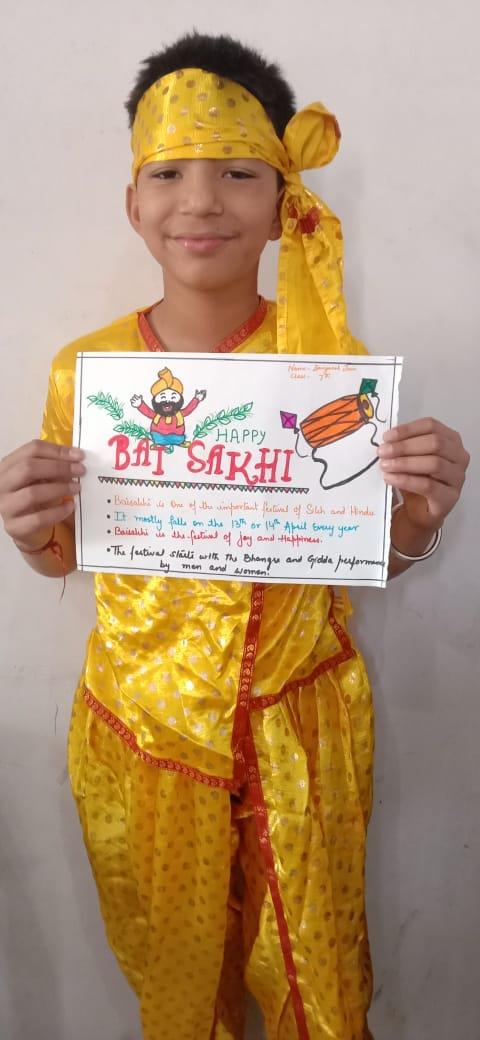 Name:-
Class:- 7th
HAPPY
BAISAKHI
• Baisakhi is One of the important festival of Sikh and Hindu
• It mostly falls on the 13th or 14th April Every year
• Baisakhi is the festival of Joy and Happiness.
• The festival starts with the Bhangra and Gidda performance
by men and women.